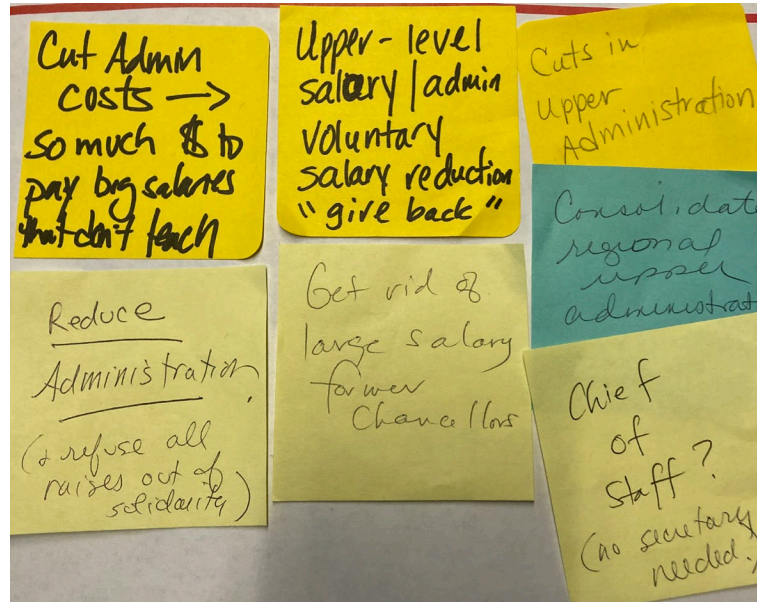 Cut Admin
costs →
so much $ to
pay big salaries
that don't teach
Upper-level
salary/admin
voluntary
salary reduction
"give back"
Cuts in
upper
Administration
Consolidate
regional
upper
administrat
Reduce
Administration.
(& refuse all
raises out of
solidarity)
Get rid of
large salary
former
Chancellors
Chief
of
Staff?
(no secretary
needed.